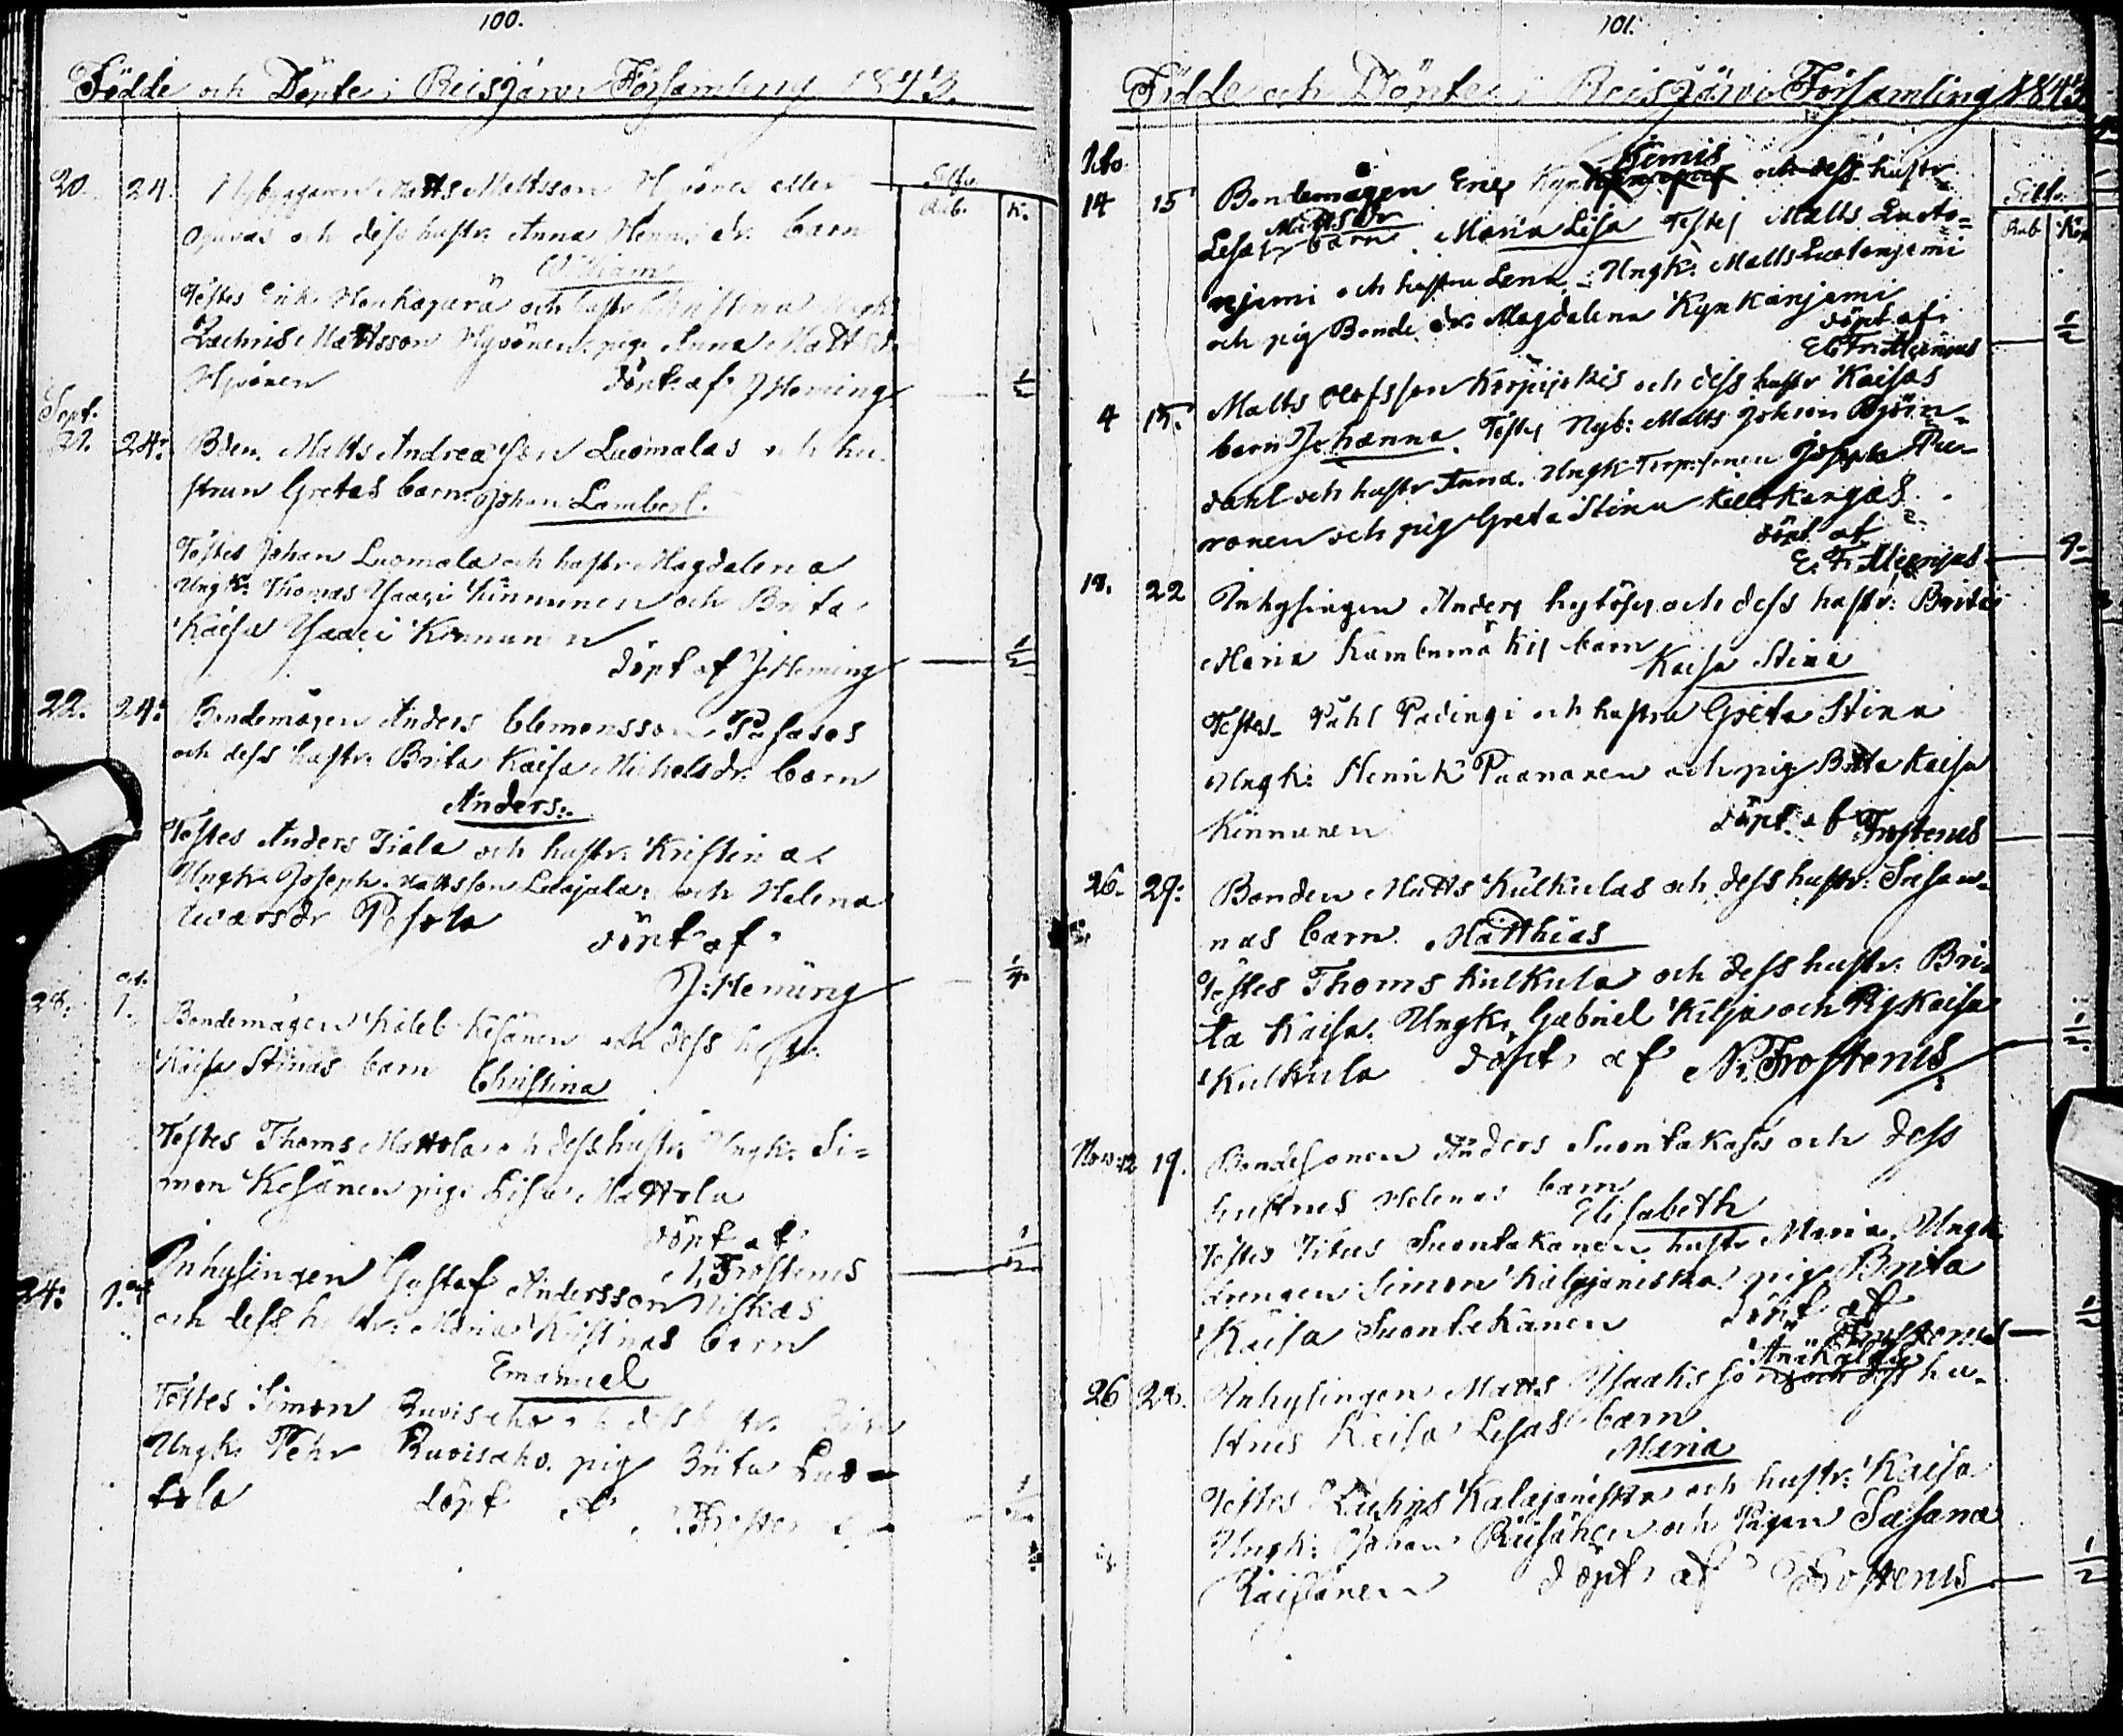 100.
Födde och Döpte i Reisjärvi Församling 1843.
Silfv.
Rub. K.
20. 24. Nybyggaren Matts Mattsson Hyvönen eller
och dess hustr. Anna Henr. dr. barn
William
Testes Erik Honkaperä och hustr Christina Ungk.
Zachris Mattsson Hyvönen, pig. Anna Matts dr.
Hyvönen döpt af J Heming 1/2
Sept.
21. 24. Bden. Matts Andreæ son Luomalas och hu-
strun Gretas barn Johan Lambert.
Testes Johan Luomala och hustr Magdalena
Ungk. Thomas Isaaci Kinnunen och Brita
Kaisa Isaaci Kinnunen
döpt af J Heming 1/2
22. 24. Bondemågen Anders Clemensson
och dess hustr. Brita Kaisa Michelsdr. barn
Anders.
Testes Anders Tiala och hustr. Kristina
Ungk. Joseph Mattsson och Helena
döpt af
J: Heming
oct.
28. 1. Bondemågen Kaleb Kesänen och dess hustr.
Kaisa Stinas barn Christina
Testes Thoms Mattola och dess hustr. Ungk. Si=
mon Kesänen pig. Lisa Mattola
döpt af
N. Frostenus 1/2
24. 1. Inhysingen Gustaf Andersson Niskas
och dess hustr. Maria Kristinas barn
Emanuel
Testes Simon Ruvisaho och dess hustr.
Ungk. Pehr Ruvisaho. pig Brita Luo-
tola döpt af Frostenus
101.
Födde och Döpte i Reisjärvi Församling 1843
Octo
Silfv.
Rub Kop
14 15 Bondemågen Eric Kyn jemis och dess hustr
Matts dr
Lisas barn Maria Lisa Testes Matts Luoto-
njemi och hustru Lena, Ungk: Matts Luotonjemi
och pig Bonde dr. Magdalena Kynkänjemi
döpt af
1/2
4 15. Matts Olofsson och dess hustr Kaisas
barn Johanna. Testes Nyb: Matts Johson Björn-
dahl och hustr Anna. Ungk Joseph Pu-
ronen och pig Greta Stina
döpt af
18. 22 Inhysingen Anders och dess hustr: Brita
Maria barn Kaisa Stina
Testes Påhl och hustru Greta Stina
Ungk: Henrik Paananen och pig Brita Kaisa
Kinnunen döpt af Frostenus
26. 29. Bonden Matts Kulkulas och dess hustr: Susan-
nas barn. Matthias
Testes Thoms Kulkula och dess hustr. Bri-
ta Kaisa. Ungk. Gabriel Kilja och Pig Kaisa
Kulkula döpt af N. Frostenus
Nov: 12 19. Bondesonen Anders Suontakases och dess
hustrus Helenas barn
Elisabeth
Testes Titus Suontakanen hustr Maria Ungk.
drengen Simon Kalajaniska pig Brita
Kaisa Suontakanen döpt af
Frostenus 1/2
26 28. Inhysingen Matts Isaaks son och dess hu-
strus Kaisa Lisas barn
Maria
Testes Zachris Kalajaniska och hustr: Kaisa
Ungk: Johan och Pigan Susana
döpt af Frostenus 1/2